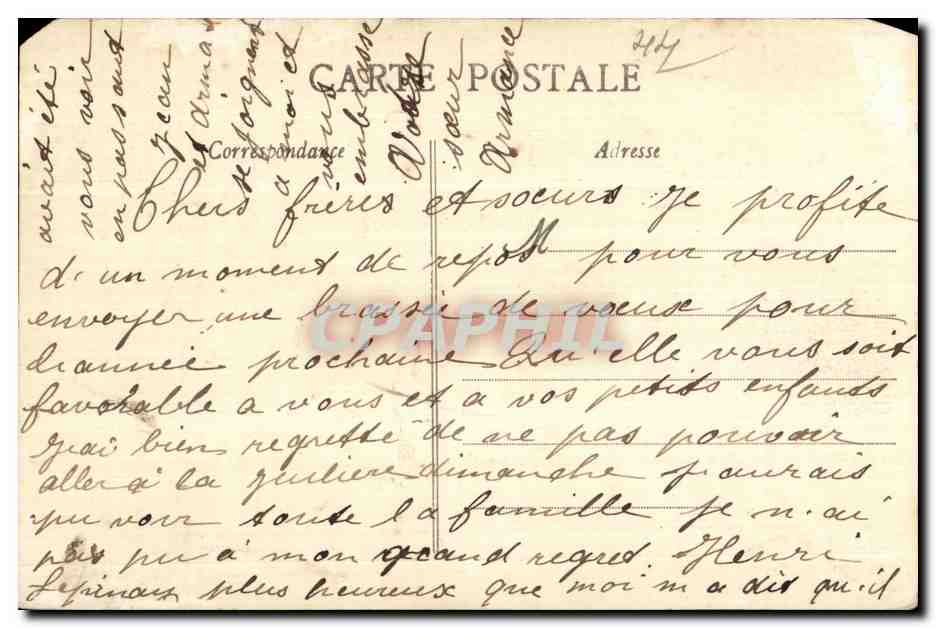 44
CARTE POSTALE
Correspondance
Adresse
Chers frères et sœurs je profite
d'un moment de repos pour vous
envoyer une brassie de vœux pour
l'année prochaine Qu'elle vous soit
favorable a vous et a vos petits enfants
J'ai bien regretté de ne pas pouvoir
aller à la dimanche j'aurais
pu voir toute la famille je n'ai
pas pu à mon grand regret. Henri
plus heureux que moi m a dit qu'il
avait été
vous voir
en passant
Jean
et Armas
se joignent
a moi et
vous
embrasse
Votre
sœur
Armance
CPAPHIL